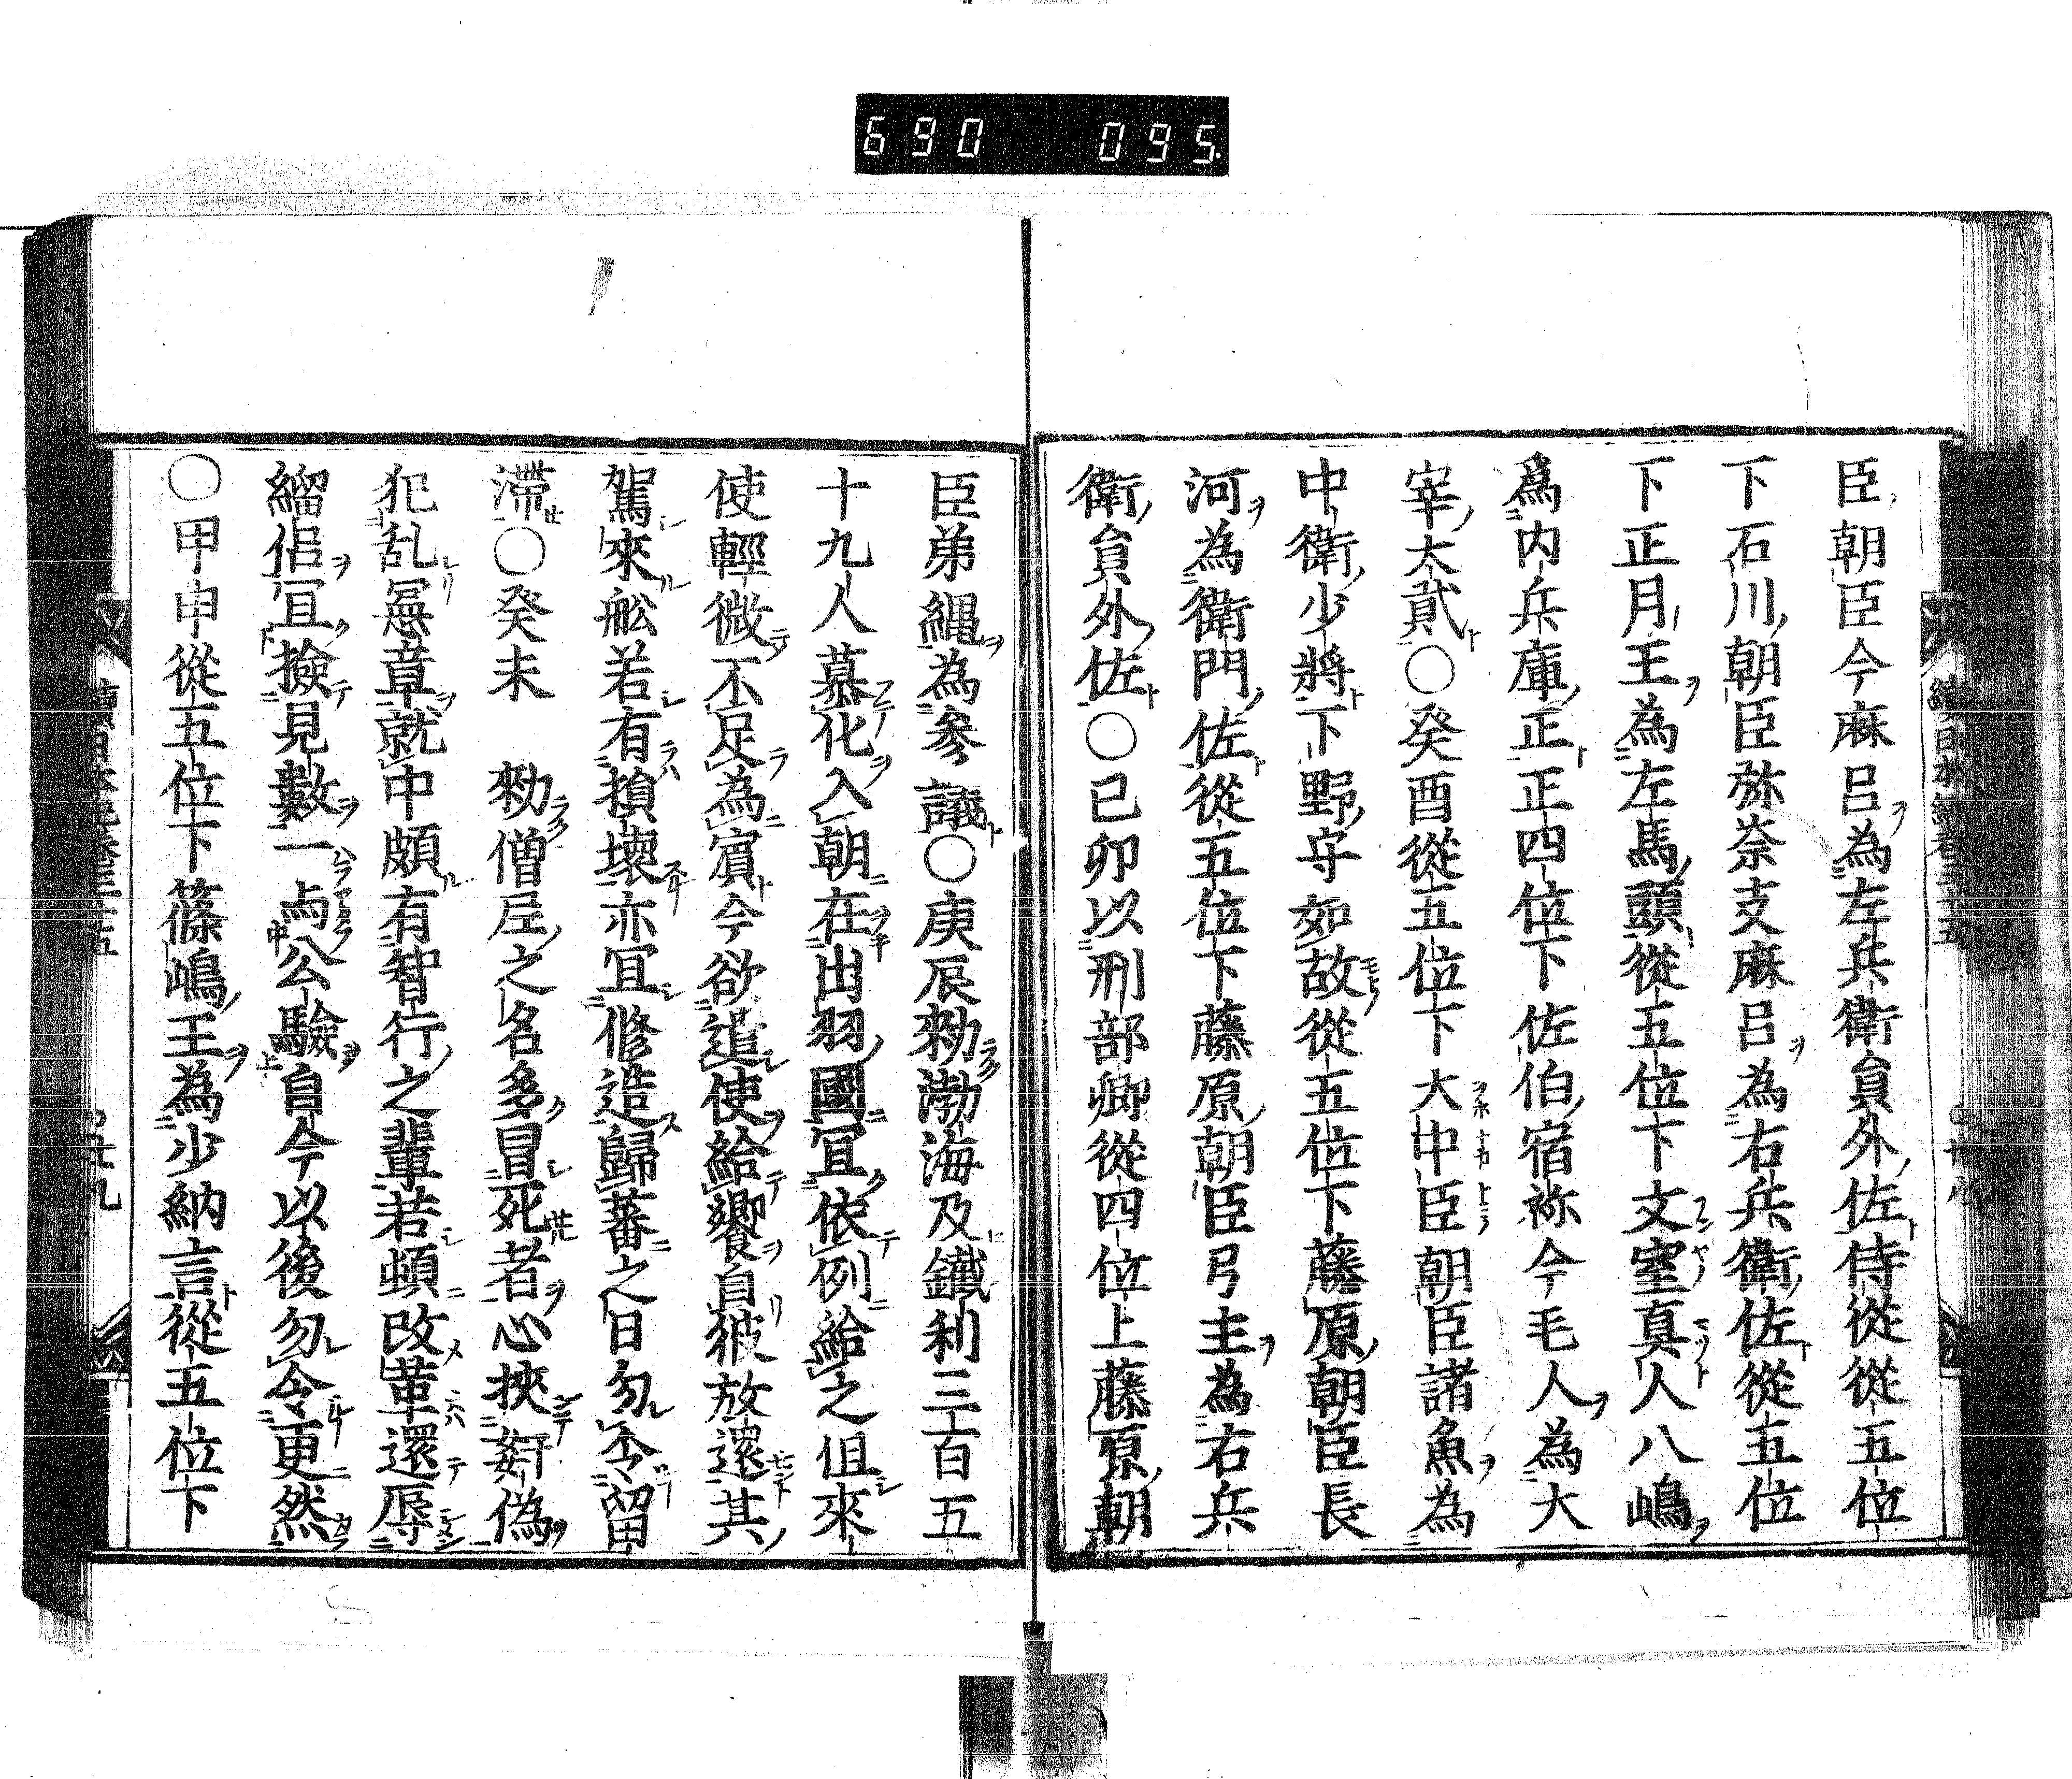 690 095
臣朝臣今麻呂為左兵衛貟外佐侍從從五位
下石川朝臣弥奈支麻呂為右兵衛佐從五位
下正月王為左馬頭從五位下文室真人八嶋
爲内兵庫正正四位下佐伯宿祢今毛人為大
宰大貳○癸酉從五位下大中臣朝臣諸魚為
中衛少將下野守如故從五位下藤原朝臣長
河為衛門佐從五位下藤原朝臣弓主為右兵
衛貟外佐○已卯以刑部卿從四位上藤原朝
臣弟縄為参議○庚辰勑渤海及鐵利三百五
十九人慕化入朝在出羽國冝依例給之但來
使輕微不足為賓今欲遣使給饗自彼放還其
駕來舩若有損壞亦冝修造歸蕃之日勿令留
滞○癸未 勑僧尼之名多冒死者心挾姧偽
犯乱憲章就中頗有智行之輩若頓改革還辱
緇侶冝撿見數一与公驗自今以後勿令更然
○甲申從五位下篠嶋王為少納言從五位下